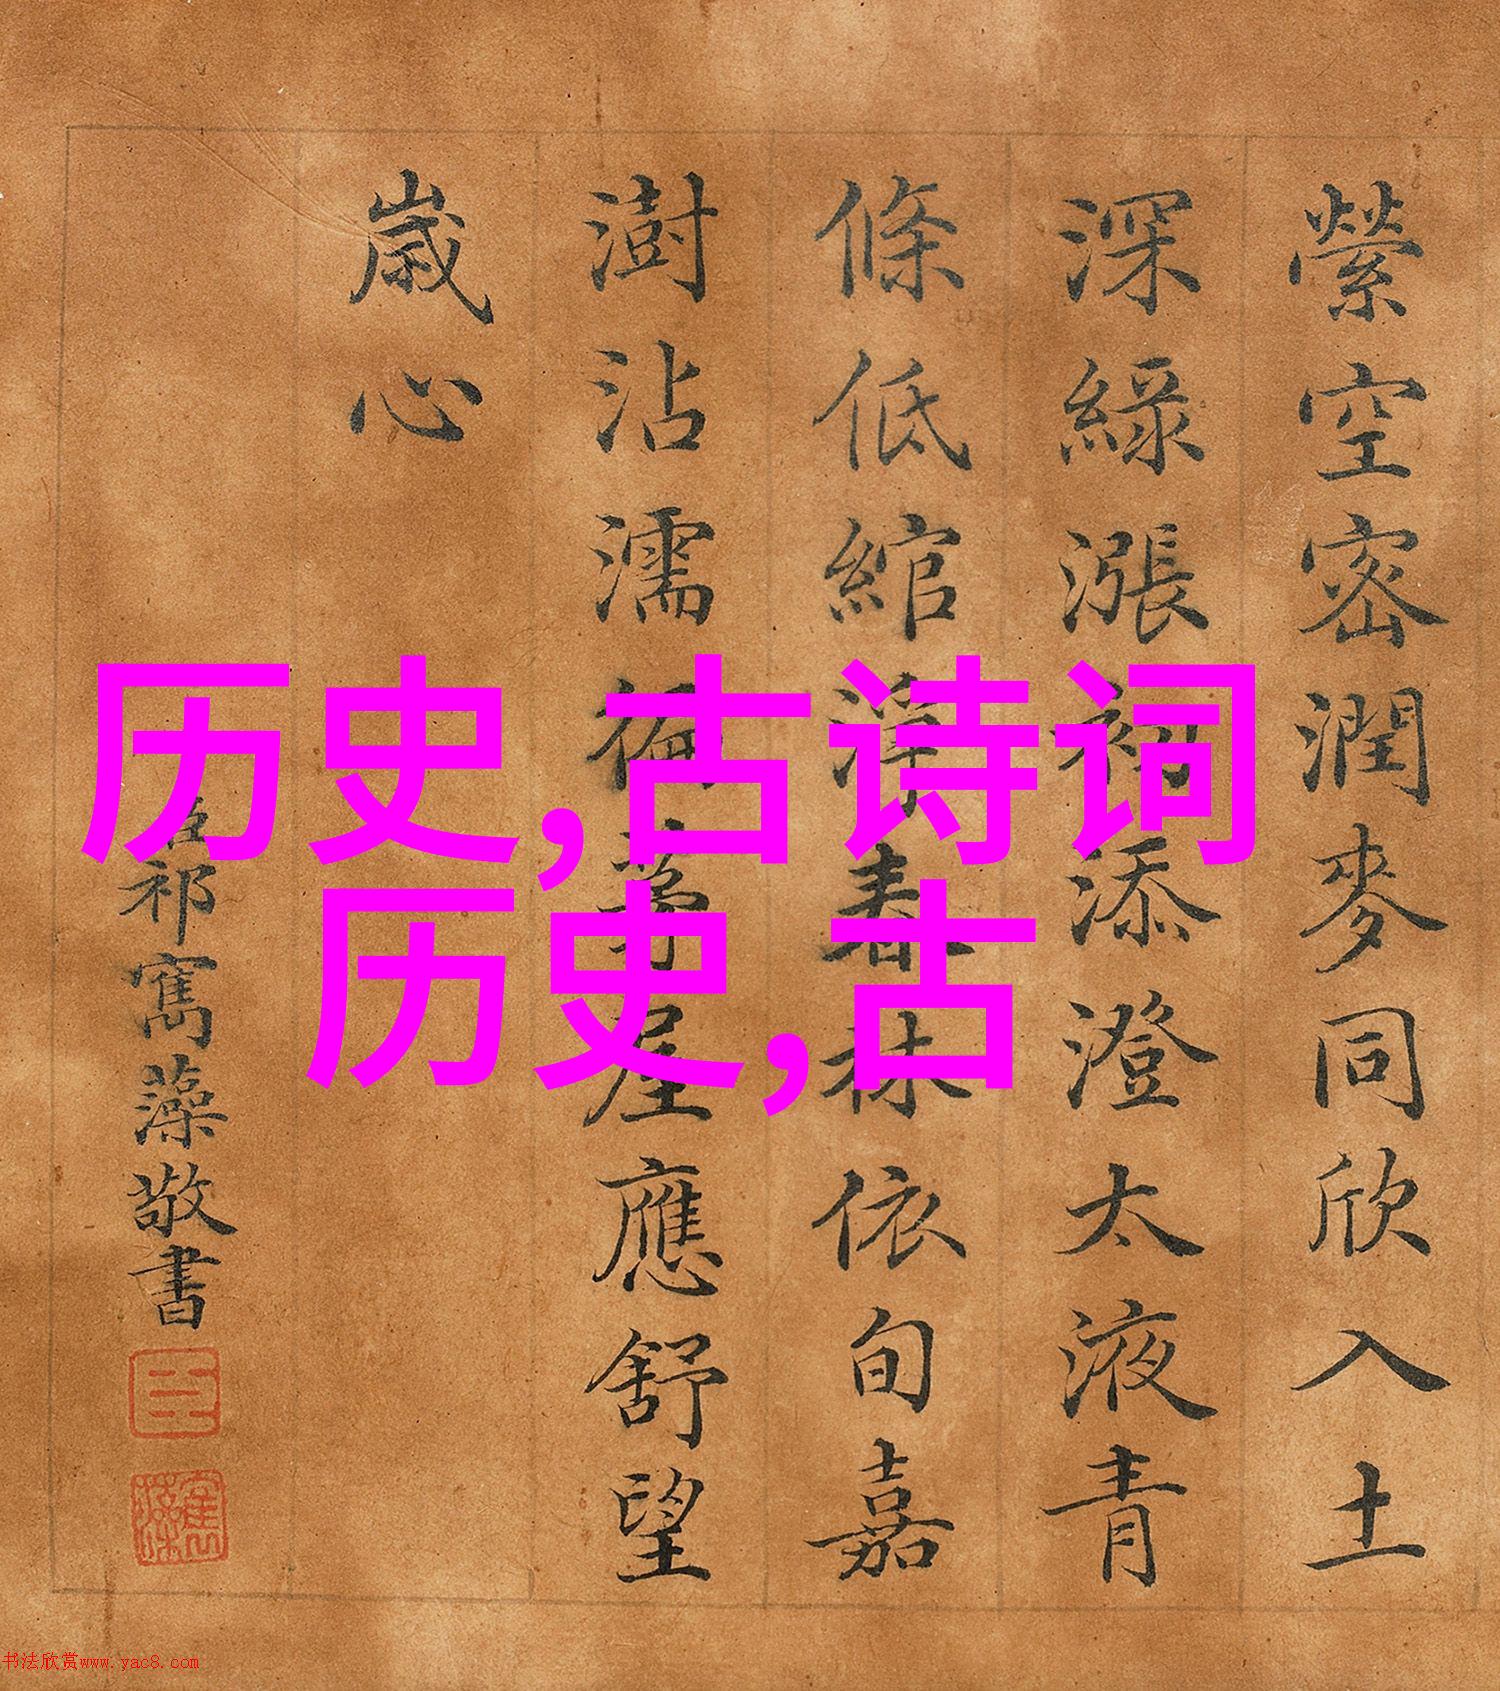 縈空密潤麥同欣入土
深綠漲初添澄太液青
條低綰
春林依旬嘉
澍沾濡徧茅屋應舒望
歲心
臣祁寯藻敬書
臣
寯藻
历史,古诗词
历史,古
书法欣赏www.yac8.com